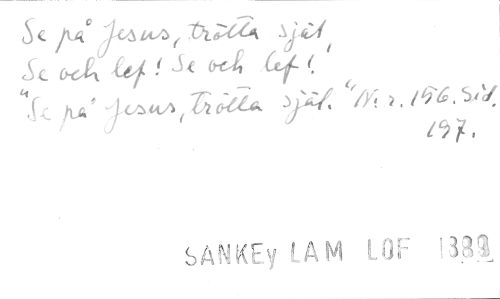 Se på Jesus, trötta själ,
Se och lef! Se och lef!
"Se på Jesus, trötta själ." N:r. 156. Sid.
197.
SANKEy LAM LOF 1889